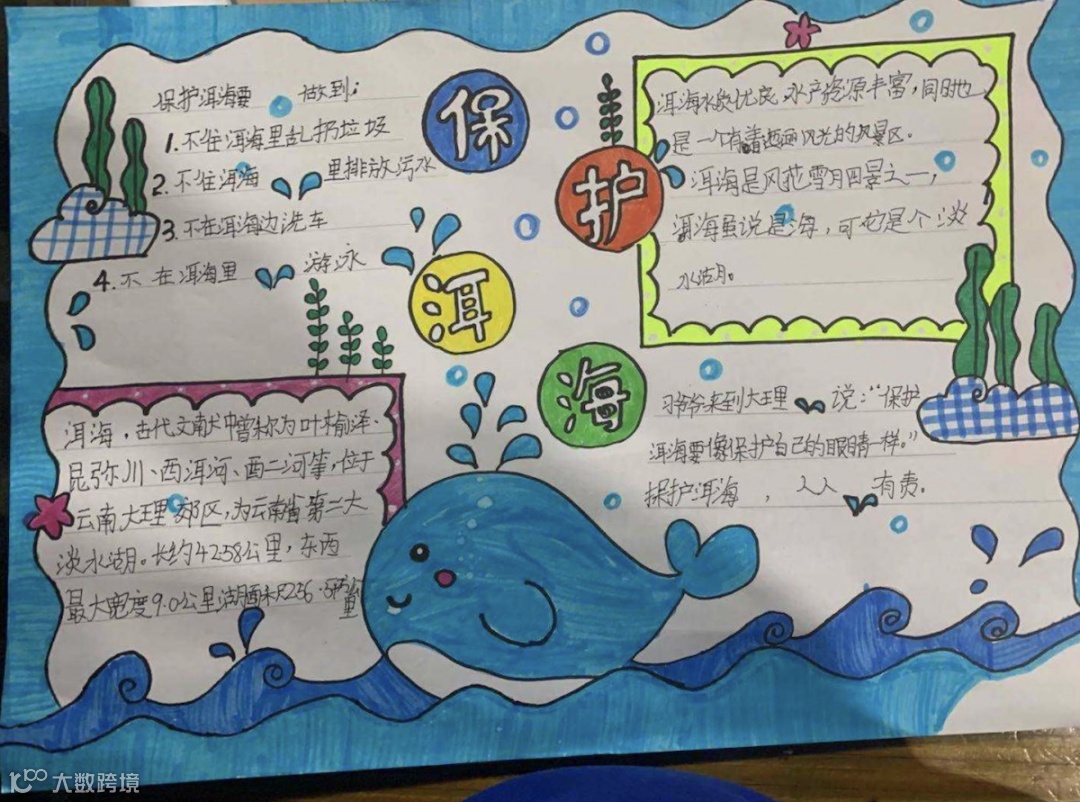 保护洱海
保护洱海要 做到:
1.不往洱海里乱扔垃圾
2.不往洱海 里排放污水
3.不在洱海边洗车
4.不在洱海里 游泳
洱海水质优良,水产资源丰富,同时也
是一个有着 风光的风景区。
洱海是风花雪月四景之一,
洱海虽说是海,可它是个淡
水湖。
洱海,古代文献中曾称为叶榆泽、
昆弥川、西洱河、西二河等,位于
云南大理郊区,为云南省第二大
淡水湖。长约42.58公里,东西
最大宽度9.0公里湖面
习爷爷来到大理 说:“保护
洱海要像保护自己的眼睛一样。”
保护洱海,人人 有责。
大数跨境